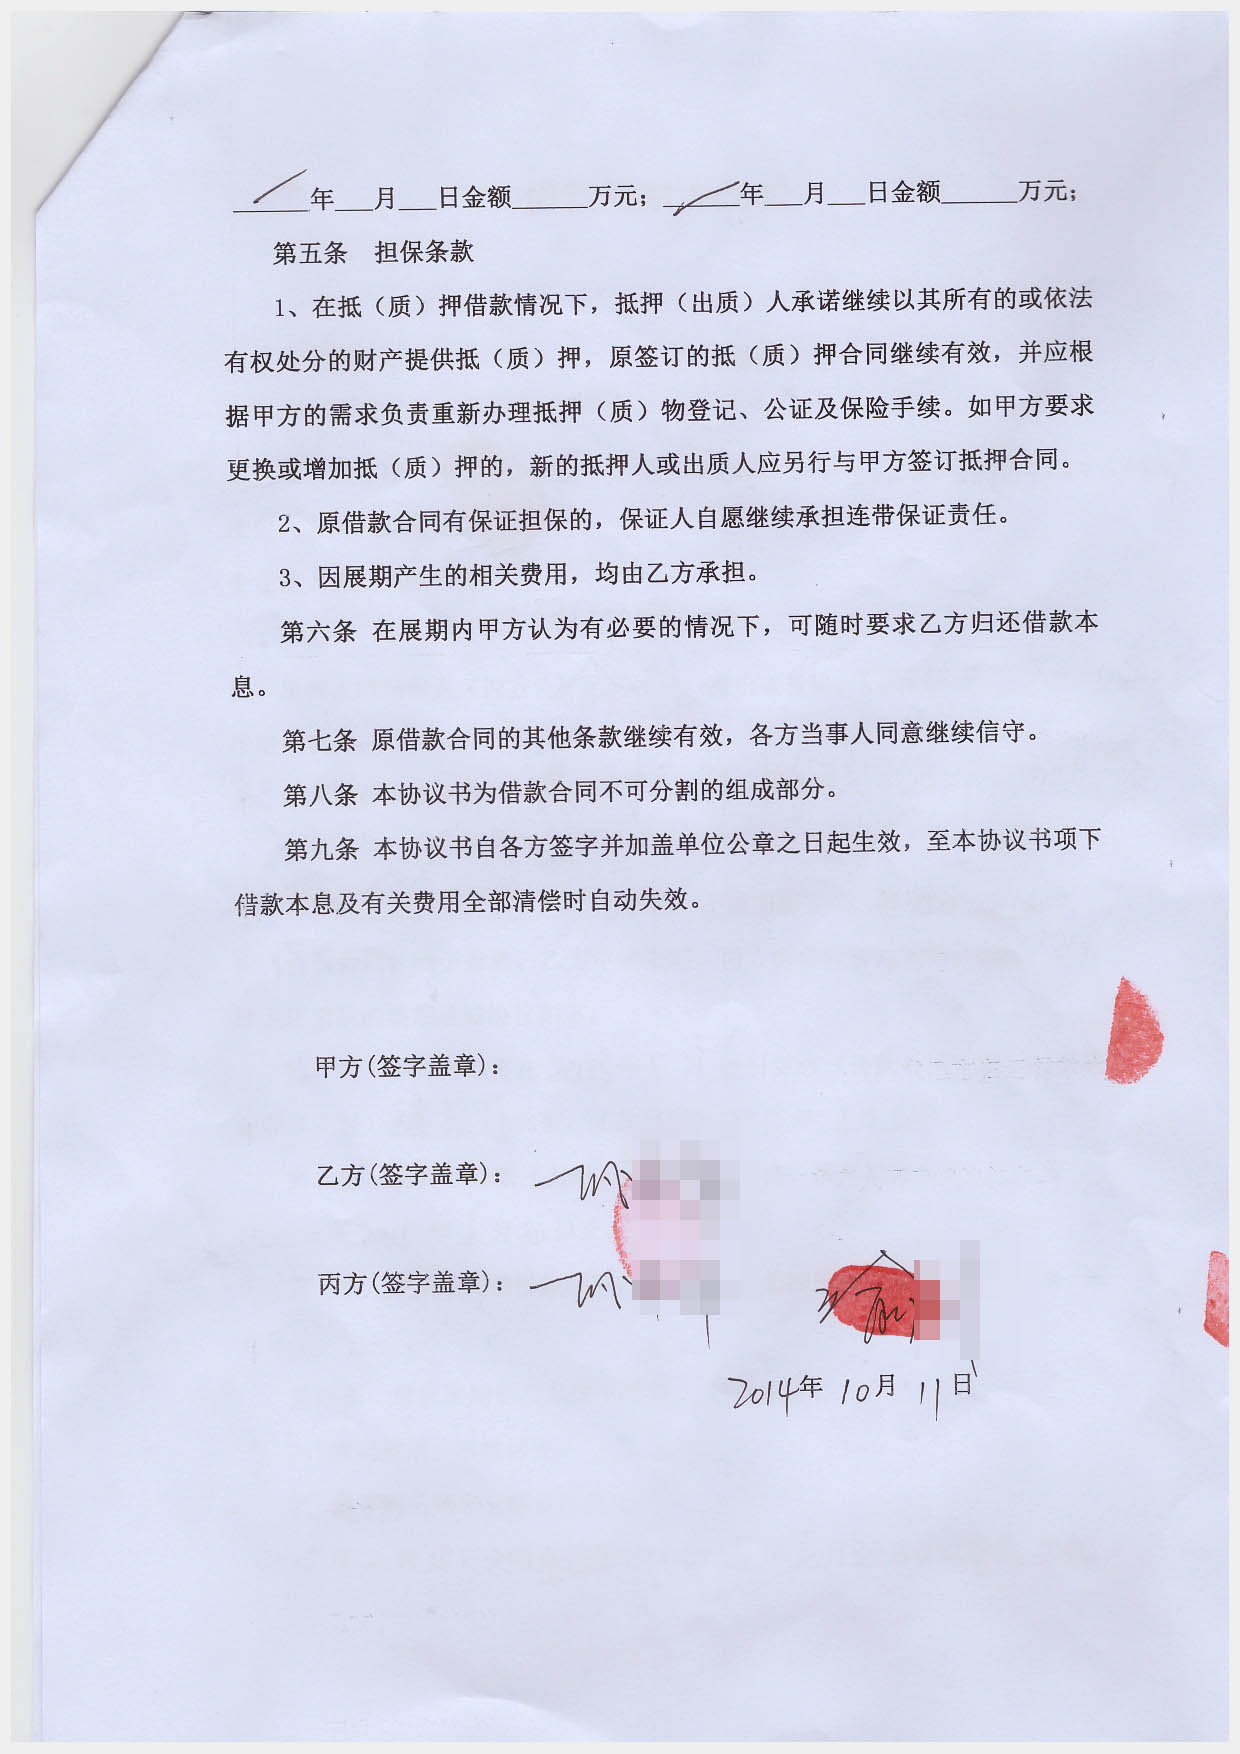 ______年___月___日金额______万元；______年___月___日金额______万元；
第五条　担保条款
1、在抵（质）押借款情况下，抵押（出质）人承诺继续以其所有的或依法
有权处分的财产提供抵（质）押，原签订的抵（质）押合同继续有效，并应根
据甲方的需求负责重新办理抵押（质）物登记、公证及保险手续。如甲方要求
更换或增加抵（质）押的，新的抵押人或出质人应另行与甲方签订抵押合同。
2、原借款合同有保证担保的，保证人自愿继续承担连带保证责任。
3、因展期产生的相关费用，均由乙方承担。
第六条 在展期内甲方认为有必要的情况下，可随时要求乙方归还借款本
息。
第七条 原借款合同的其他条款继续有效，各方当事人同意继续信守。
第八条 本协议书为借款合同不可分割的组成部分。
第九条 本协议书自各方签字并加盖单位公章之日起生效，至本协议书项下
借款本息及有关费用全部清偿时自动失效。
甲方(签字盖章)：
乙方(签字盖章)：
丙方(签字盖章)：
2014年 10月 11日